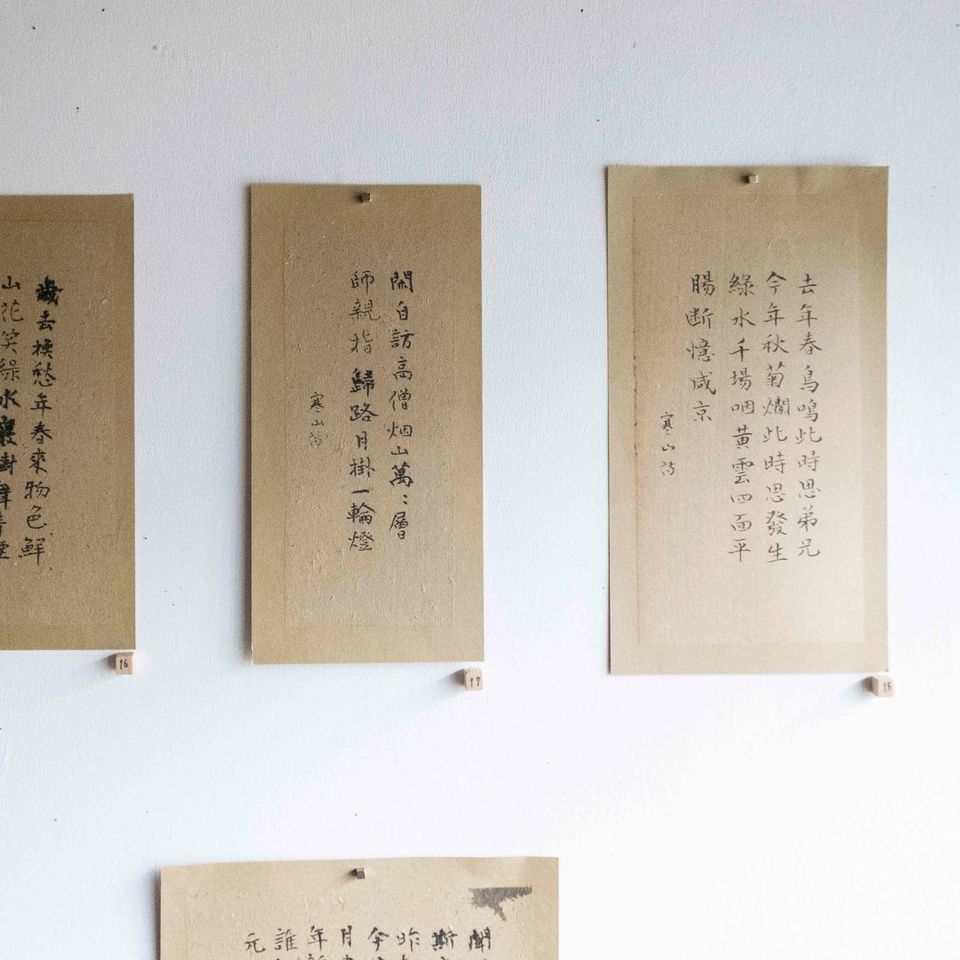 去年春鳥鳴此時思弟兄
今年秋菊爛此時思發生
綠水千場咽黃雲四面平
腸断憶咸京
寒山詩
15
閑自訪高僧烟山萬〻層
師親指歸路月掛一輪燈
寒山詩
17
歲去換愁年春來物色鮮
山花笑綠水巖樹舞青
16
聞
斯
昨
今
月
年
誰
元